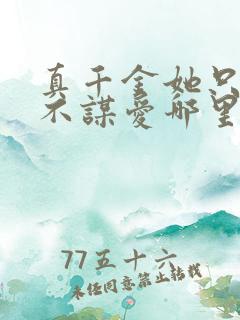 真千金她只
不謀愛哪里
77五十六
未经同意禁止转载